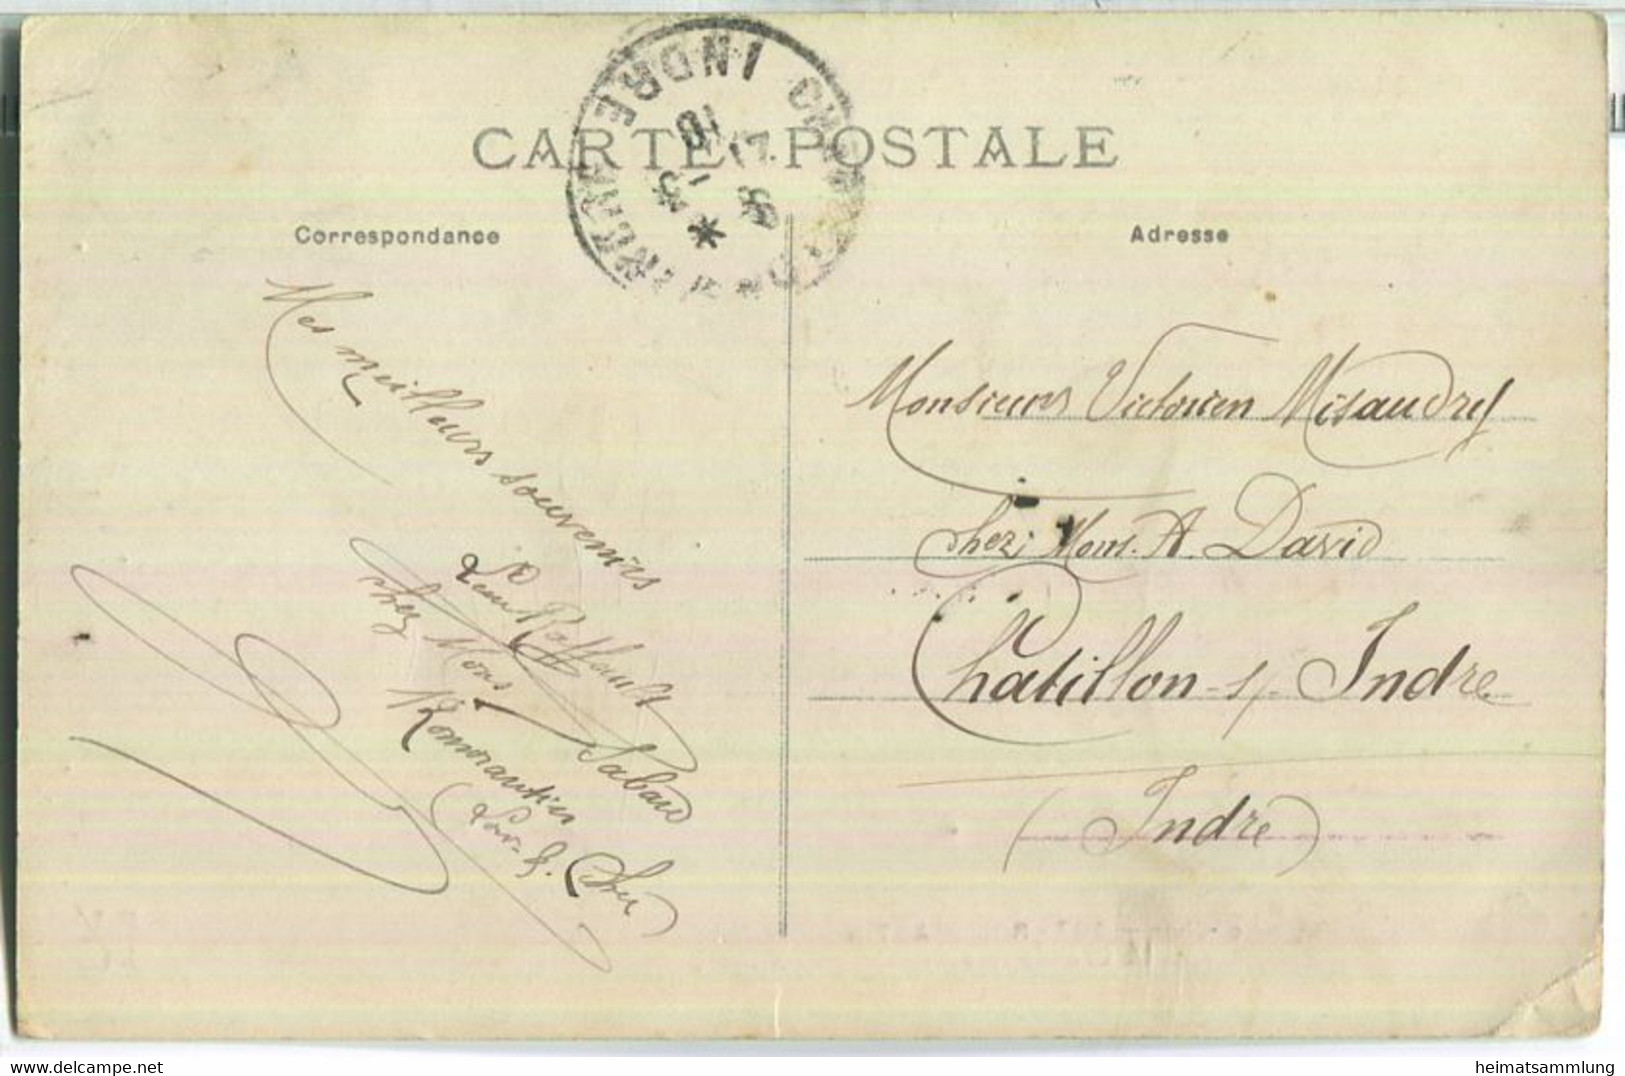 CARTE POSTALE
INDRE
Correspondance
Adresse
Mes meilleurs souvenirs
Raffault
chez Mons Sabard
Romorantin
Loir-&-Cher
Monsieur Victorien Misaudry
chez Mons. A. David
Châtillon-s/-Indre
(Indre)
heimatsammlung